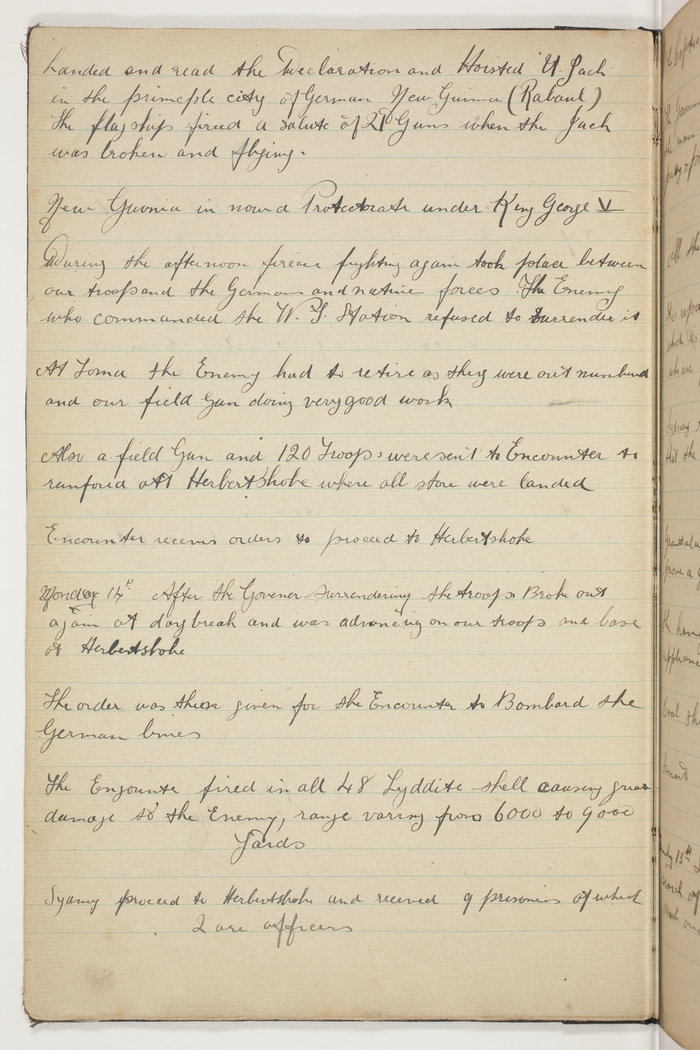 Landed and read the Declaration and Hoisted U Jack
in the principle city of German New Guinea (Rabaul)
The flagships fired a salute of 21 Guns when the Jack
was broken and flying.
New Guinia in now a Protectorate under King George V
During the afternoon fierce fighting again took place between
our troops and the Germans and native forces The Enemy
who commanded the W. T. Station refused to surrender it
At Toma the Enemy had to retire as they were out numbered
and our field Gun doing very good work
Also a field Gun and 120 Troops were sent to Encounter to
at Herbertshohe where all store were landed
Encounter receives orders to proceed to Herbertshohe
Monday 14th After the Govener surrendering the troops Broke out
again at daybreak and was advancing on our troops and base
at Herbertshohe
The order was then given for the Encounter to Bombard the
German lines
The Encounter fired in all 48 Lyddite shell causing great
damage to the Enemy, range varing from 6000 to 9000
Yards
Sydney proceed to Herbertshohe and received 9 prisoners of which
2 are officers